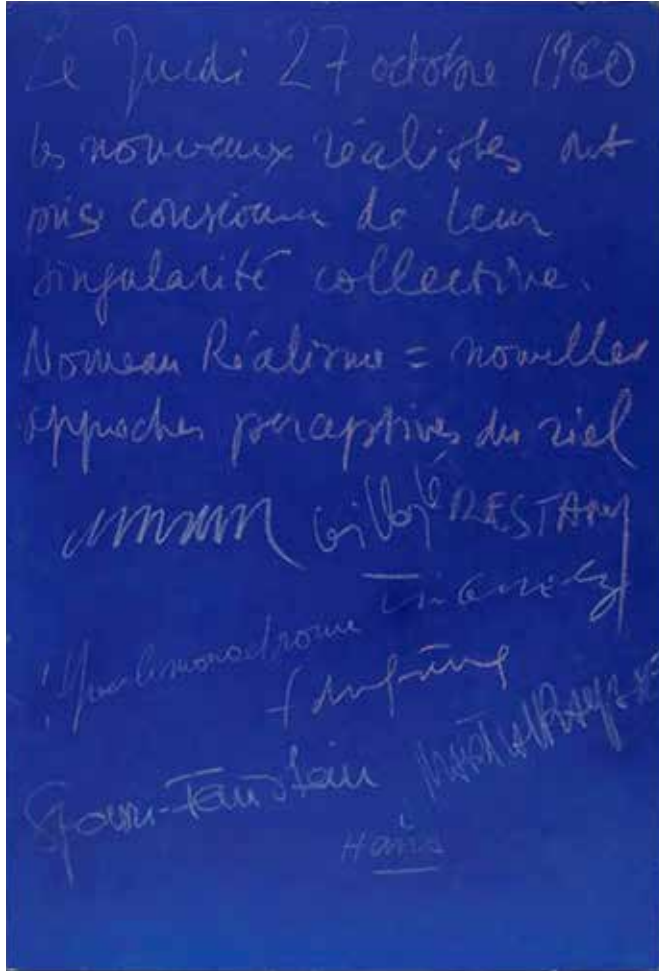 Le Jeudi 27 octobre 1960
les nouveaux réalistes ont
pris conscience de leur
singularité collective.
Nouveau Réalisme = nouvelles
approches perceptives du réel
arman Villeglé RESTANY
Tinguely
Yves le monochrome
f dufrêne
Spoerri-Feinstein MARTIAL RAYSSE
Hains